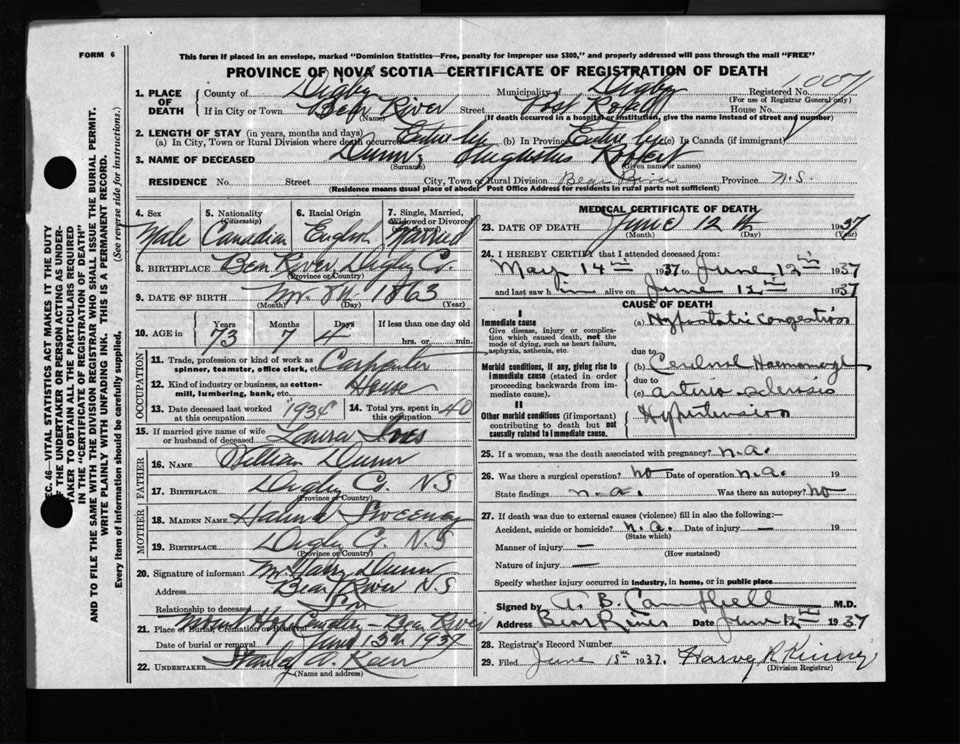 FORM 6
This form if placed in an envelope, marked "Dominion Statistics—Free, penalty for improper use $300," and properly addressed will pass through the mail "FREE"
PROVINCE OF NOVA SCOTIA—CERTIFICATE OF REGISTRATION OF DEATH
1. PLACE OF DEATH County of Digby Municipality of Digby Registered No.
(For use of Registrar General only)
If in City or Town Bear River Street Post Road House No.
(Name) (If death occurred in a hospital or institution, give the name instead of street and number)
2. LENGTH OF STAY (in years, months and days)
(a) In City, Town or Rural Division where death occurred Entire life (b) In Province Entire life (c) In Canada (if immigrant)
3. NAME OF DECEASED Dunn, Augustus Robert
(Surname) (Given name or names)
RESIDENCE No. Street City, Town or Rural Division Bear River Province N.S.
(Residence means usual place of abode. Post Office Address for residents in rural parts not sufficient)
4. Sex Male
5. Nationality (Citizenship) Canadian
6. Racial Origin English
7. Single, Married, Widowed or Divorced Married
8. BIRTHPLACE Bear River, Digby Co.
(Province or Country)
9. DATE OF BIRTH 8th 1863
(Month) (Day) (Year)
10. AGE in Years 73 Months 7 Days 4 If less than one day old hrs. or min.
OCCUPATION
11. Trade, profession or kind of work as spinner, teamster, office clerk, etc. Carpenter
12. Kind of industry or business, as cotton-mill, lumbering, bank, etc. House
13. Date deceased last worked at this occupation 193
14. Total yrs. spent in this occupation 40
15. If married give name of wife or husband of deceased Laura
FATHER
16. NAME William Dunn
17. BIRTHPLACE Digby Co. N.S
(Province or Country)
MOTHER
18. MAIDEN NAME Hannah Sweeney
19. BIRTHPLACE Digby Co. N.S
(Province or Country)
20. Signature of informant Mr Harry Dunn
Address Bear River N.S
Relationship to deceased Son
21. Place of Burial, Cremation or Removal Mount Hope Cemetery - Bear River
Date of burial or removal June 13th 1937
22. UNDERTAKER Stanley
(Name and address)
MEDICAL CERTIFICATE OF DEATH
23. DATE OF DEATH June 12 th 1937
(Month) (Day) (Year)
24. I HEREBY CERTIFY that I attended deceased from:
May 14th 1937 to June 12th 1937
and last saw h im alive on June 12th 1937
CAUSE OF DEATH
I
Immediate cause
Give disease, injury or complication which caused death, not the mode of dying, such as heart failure, asphyxia, asthenia, etc.
(a) Hypostatic Congestion
due to
Morbid conditions, if any, giving rise to immediate cause (stated in order proceeding backwards from immediate cause).
(b) Cerebral Haemorrhage
due to
(c) arterio sclerosis
II
Other morbid conditions (if important) contributing to death but not causally related to immediate cause.
Hypertension
25. If a woman, was the death associated with pregnancy? n.a.
26. Was there a surgical operation? no Date of operation n.a. 19
State findings n.a. Was there an autopsy? no
27. If death was due to external causes (violence) fill in also the following:—
Accident, suicide or homicide? n.a. Date of injury — 19
(State which)
Manner of injury —
(How sustained)
Nature of injury —
Specify whether injury occurred in industry, in home, or in public place
Signed by A. B. Campbell M.D.
Address Bear River Date June 12th 1937
28. Registrar's Record Number
29. Filed June 15th 1937. Harvey R. Kinney
(Division Registrar)
SEC. 46—VITAL STATISTICS ACT MAKES IT THE DUTY
OF THE UNDERTAKER OR PERSON ACTING AS UNDER-
TAKER TO OBTAIN ALL THE PARTICULARS REQUIRED
IN THE "CERTIFICATE OF REGISTRATION OF DEATH"
AND TO FILE THE SAME WITH THE DIVISION REGISTRAR WHO SHALL ISSUE THE BURIAL PERMIT.
WRITE PLAINLY WITH UNFADING INK. THIS IS A PERMANENT RECORD.
Every item of Information should be carefully supplied. (See reverse side for instructions.)